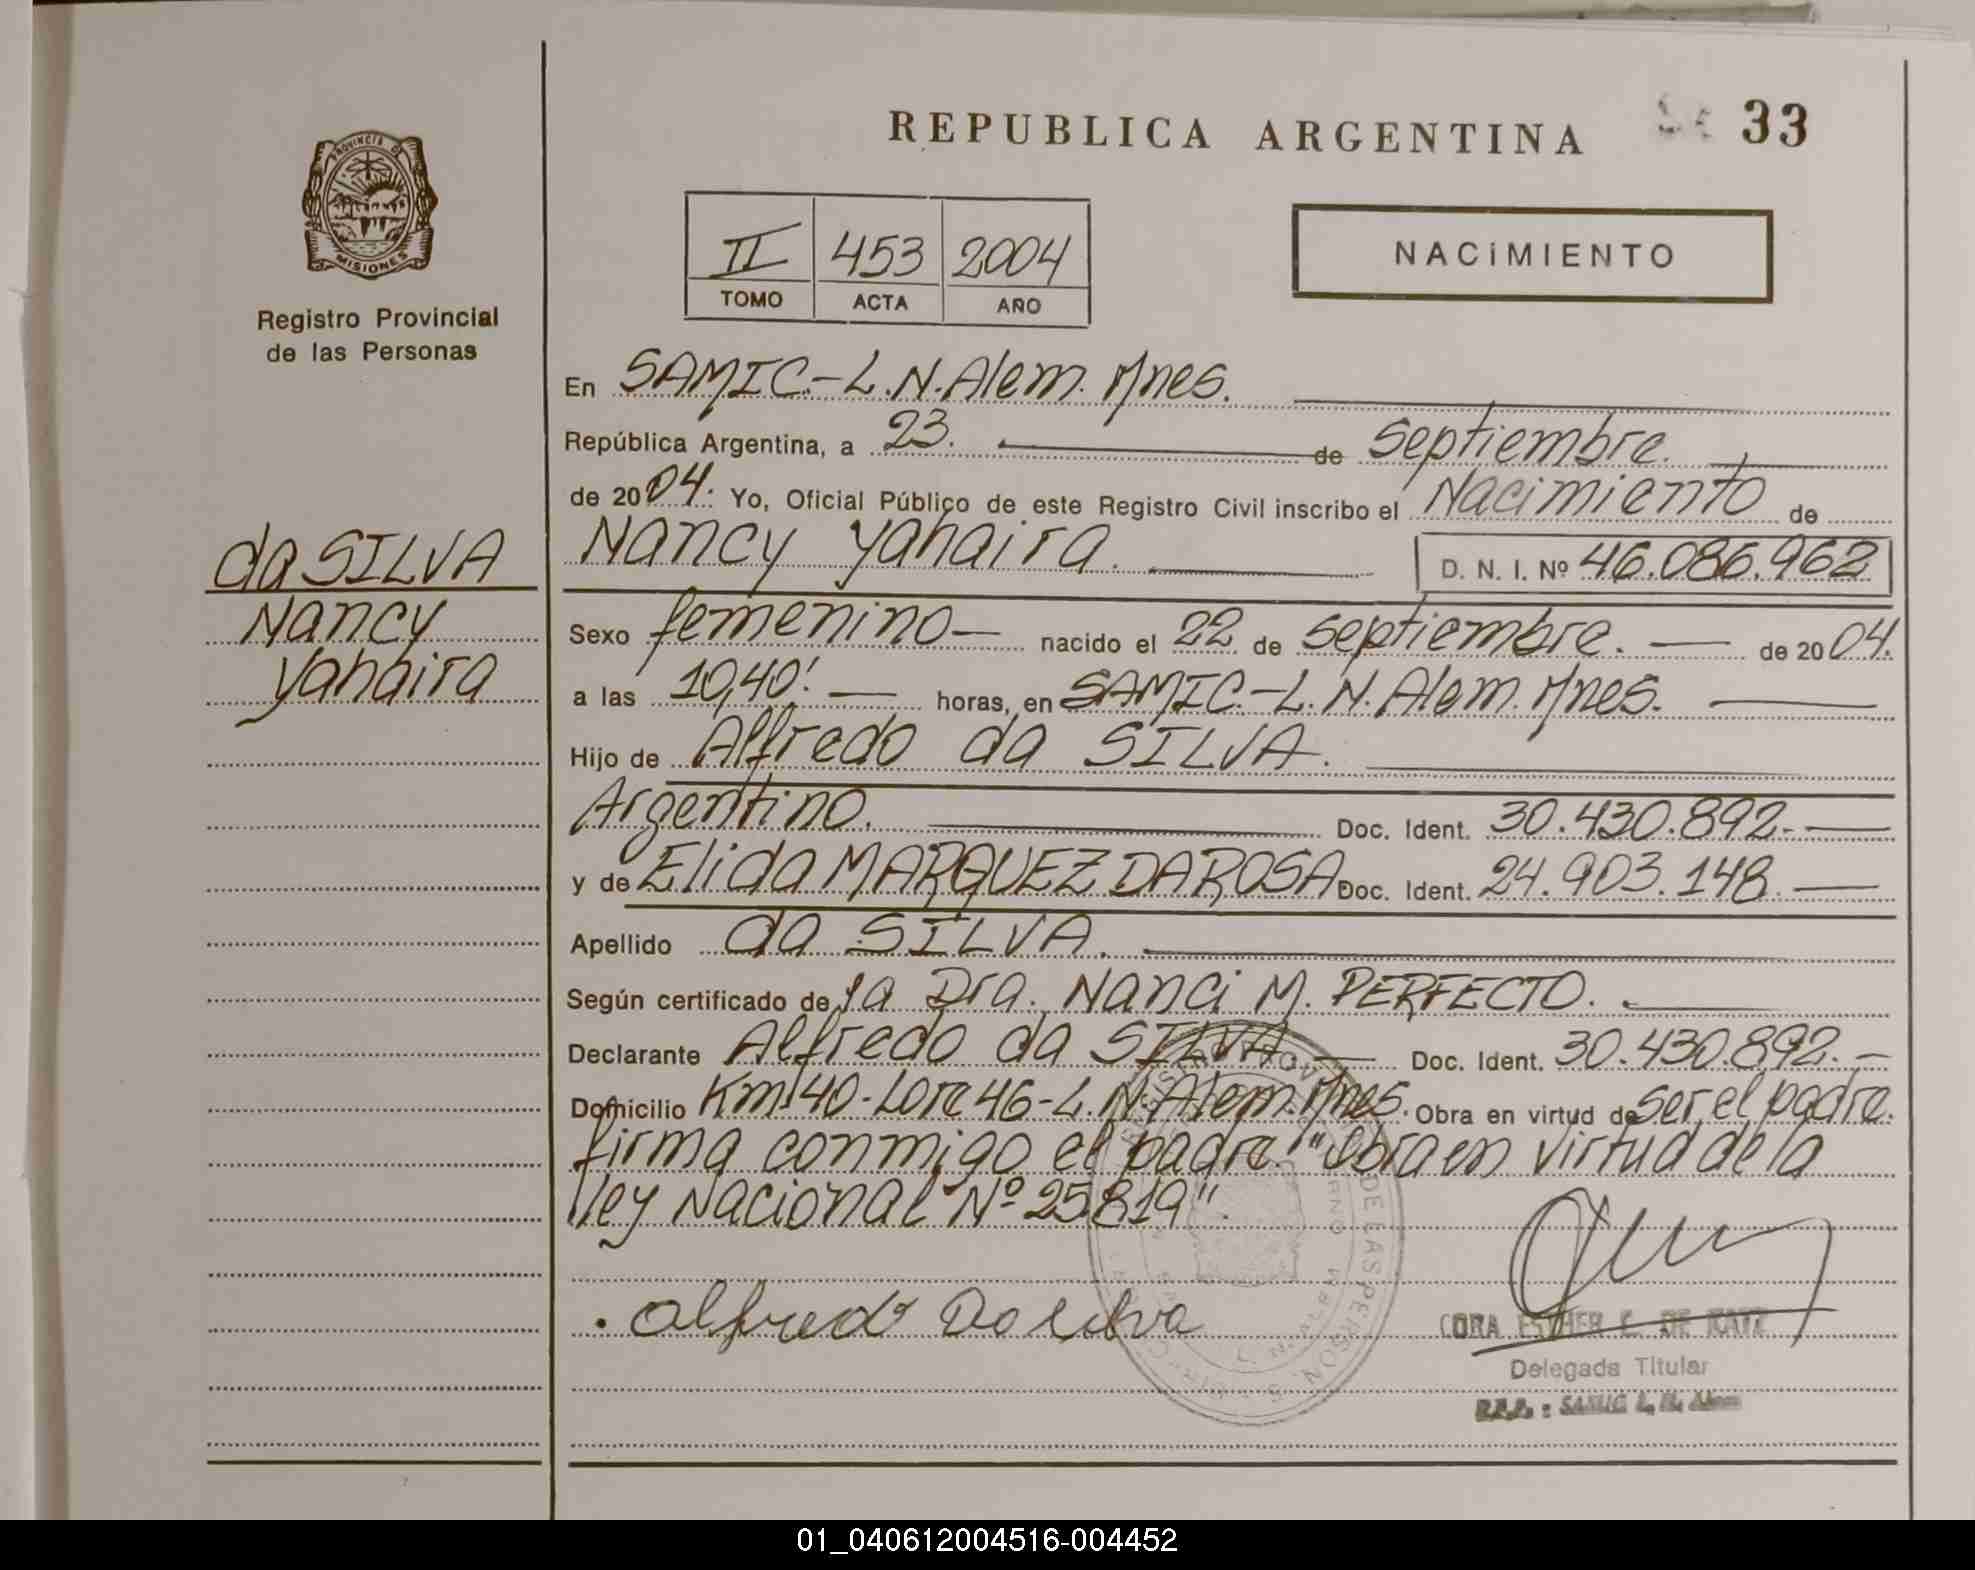 REPUBLICA ARGENTINA
33
PROVINCIA DE
MISIONES
Registro Provincial
de las Personas
II 453 2004
TOMO ACTA AÑO
NACIMIENTO
En SAMIC.-L.N.Alem. Mnes.
República Argentina, a 23. de septiembre.
de 2004. Yo, Oficial Público de este Registro Civil inscribo el Nacimiento de
Nancy Yahaira. D. N. I. Nº 46.086.962
da SILVA
Nancy
Yahaira
Sexo femenino nacido el 22 de septiembre. de 2004.
a las 10,40'. horas, en SAMIC.-L.N.Alem. Mnes.
Hijo de Alfredo da SILVA.
Argentino. Doc. Ident. 30.430.892.
y de Elida MARQUEZ DA ROSA Doc. Ident. 24.903.148.
Apellido da SILVA.
Según certificado de la Dra. Nanci M. PERFECTO.
Declarante Alfredo da SILVA. Doc. Ident. 30.430.892.
Domicilio Km 40-Lote 46-L.N.Alem. Mnes. Obra en virtud de ser el padre.
firma conmigo el padre. "Obra en virtud de la
ley Nacional Nº 25.819".
Alfredo Da silva
CORA ESTHER E. DE KATZ
Delegada Titular
R.P.P. : SAMIC L. N. Alem
01_040612004516-004452